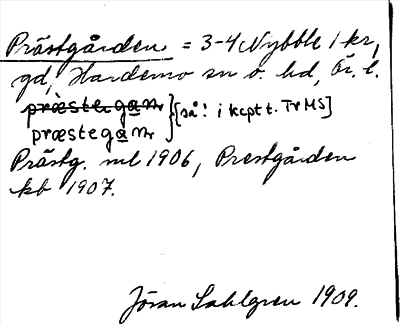 Prästgården = 3-4 Nybble 1 kr,
gd, Hardemo sn o. hd, Ör. l.
præstegan
præstegan } [så! i kcpt t. TrMS]
Prästg. ml 1906, Prestgården
kb 1907.
Jöran Sahlgren 1909.